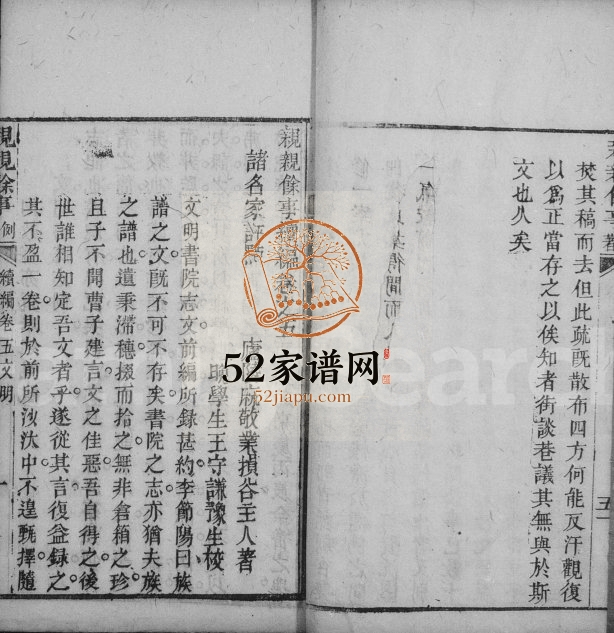 焚其稿而去但此疏既散布四方何能反汗觀復
以爲正當存之以俟知者街談巷議其無與於斯
文也久矣
五
親親餘事續編卷之五
諸名家
敬業損谷主人著
學生王守謙豫生校
文明書院志文前編所録甚約李節陽曰族
譜之文既不可不存矣書院之志亦猶夫族
之譜也遺秉滯穗掇而拾之無非倉箱之珍
且子不聞曹子建言文之佳惡吾自得之後
世誰相知定吾文者乎遂從其言復益録之
其不盈一卷則於前所汰汰中不遑甄擇隨
親親餘事
例
續編卷五文明
一
52家谱网
52jiapu.com